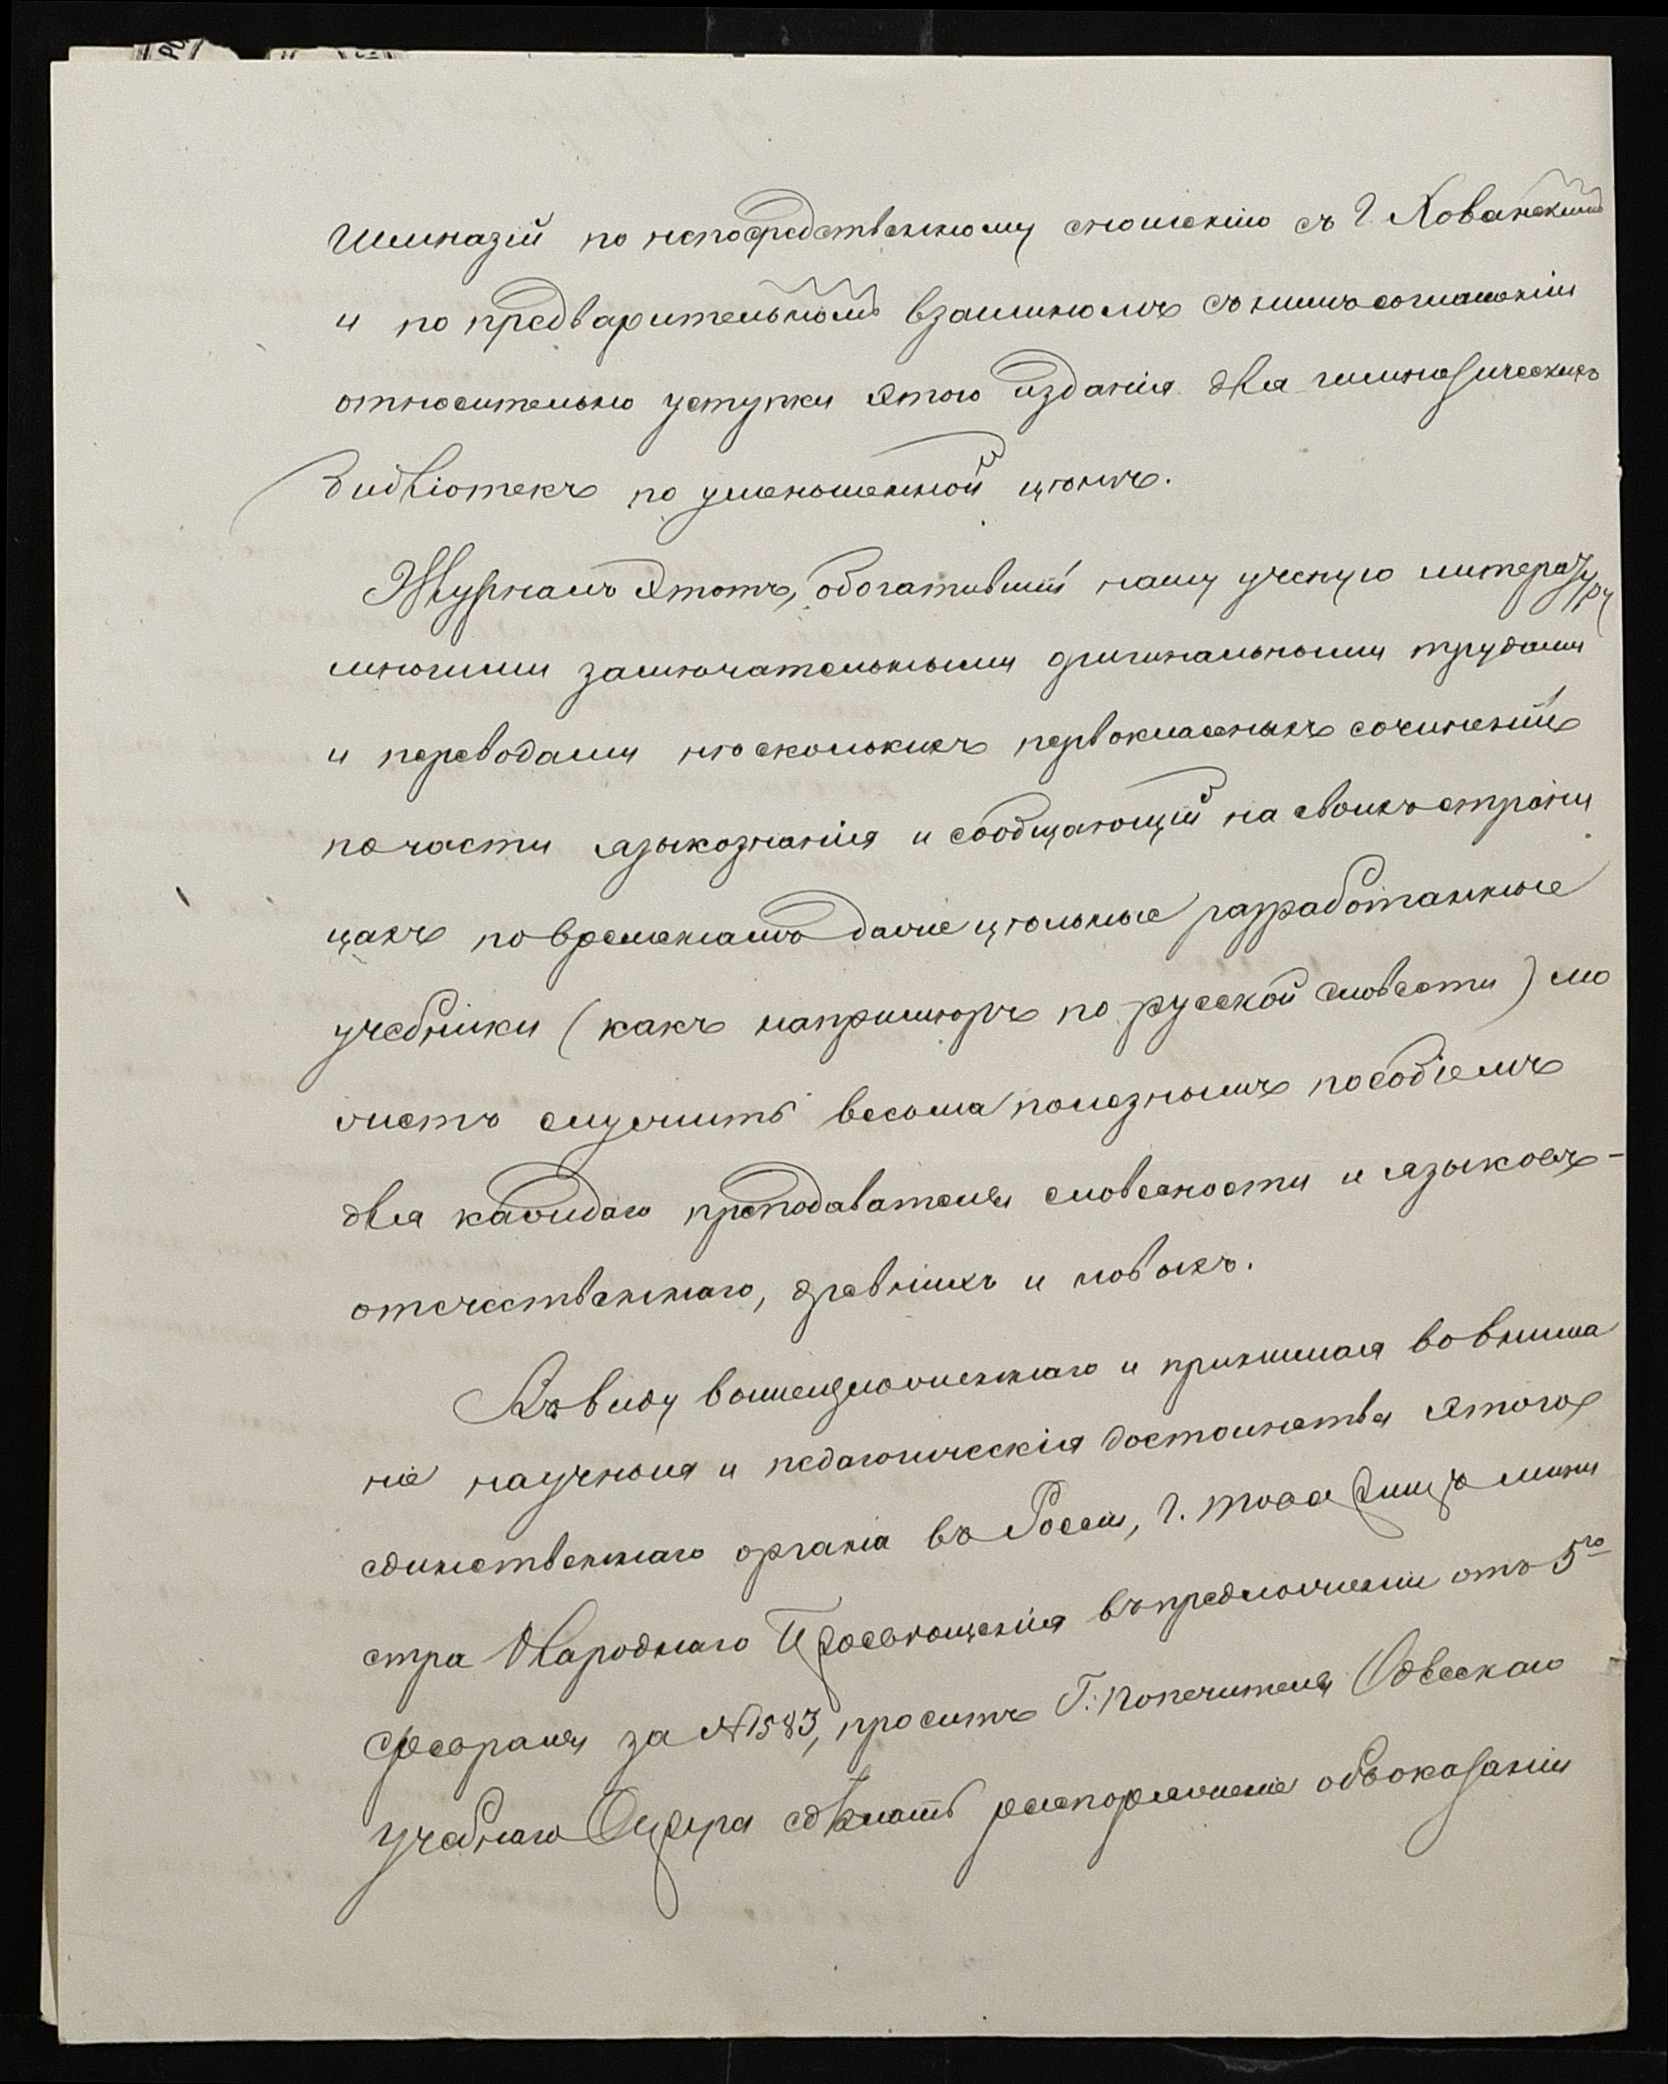 имназiй по непосредственному сношенiю съ Г. Хованскимъ
и по предварительномъ взаимномъ съ нимъ соглашенiи
относительно уступки этого изданiя для гимназическихъ
библiотекъ по уменьшенной цѣнѣ.
Журналъ этотъ, обогатившiй нашу ученую литературу
многими замѣчательными оригинальными трудами
и переводами нѣсколькихъ первокласныхъ сочиненiй
по части языкознанiя и сообщающiй на своихъ страни
цахъ по временамъ даже цѣльные разработанные
учебники (какъ напримѣръ по русской словести) мо
жетъ служить весьма полезнымъ пособiемъ
для каждаго преподавателя словесности и языковъ -
отечественнаго, древнихъ и новыхъ.
Въ виду вышеизложеннаго и принимая во внима
нiе научныя и педагогическiя достоинства этого
единственнаго органа въ Россiи, Г. Товарищъ мини
стра Народнаго Просвѣщенiя въ предложенiи отъ 5го
Февраля за № 1583, проситъ Г. Попечителя Одесскаго
учебнаго Округа сдѣлать распоряженiе объ оказанiи